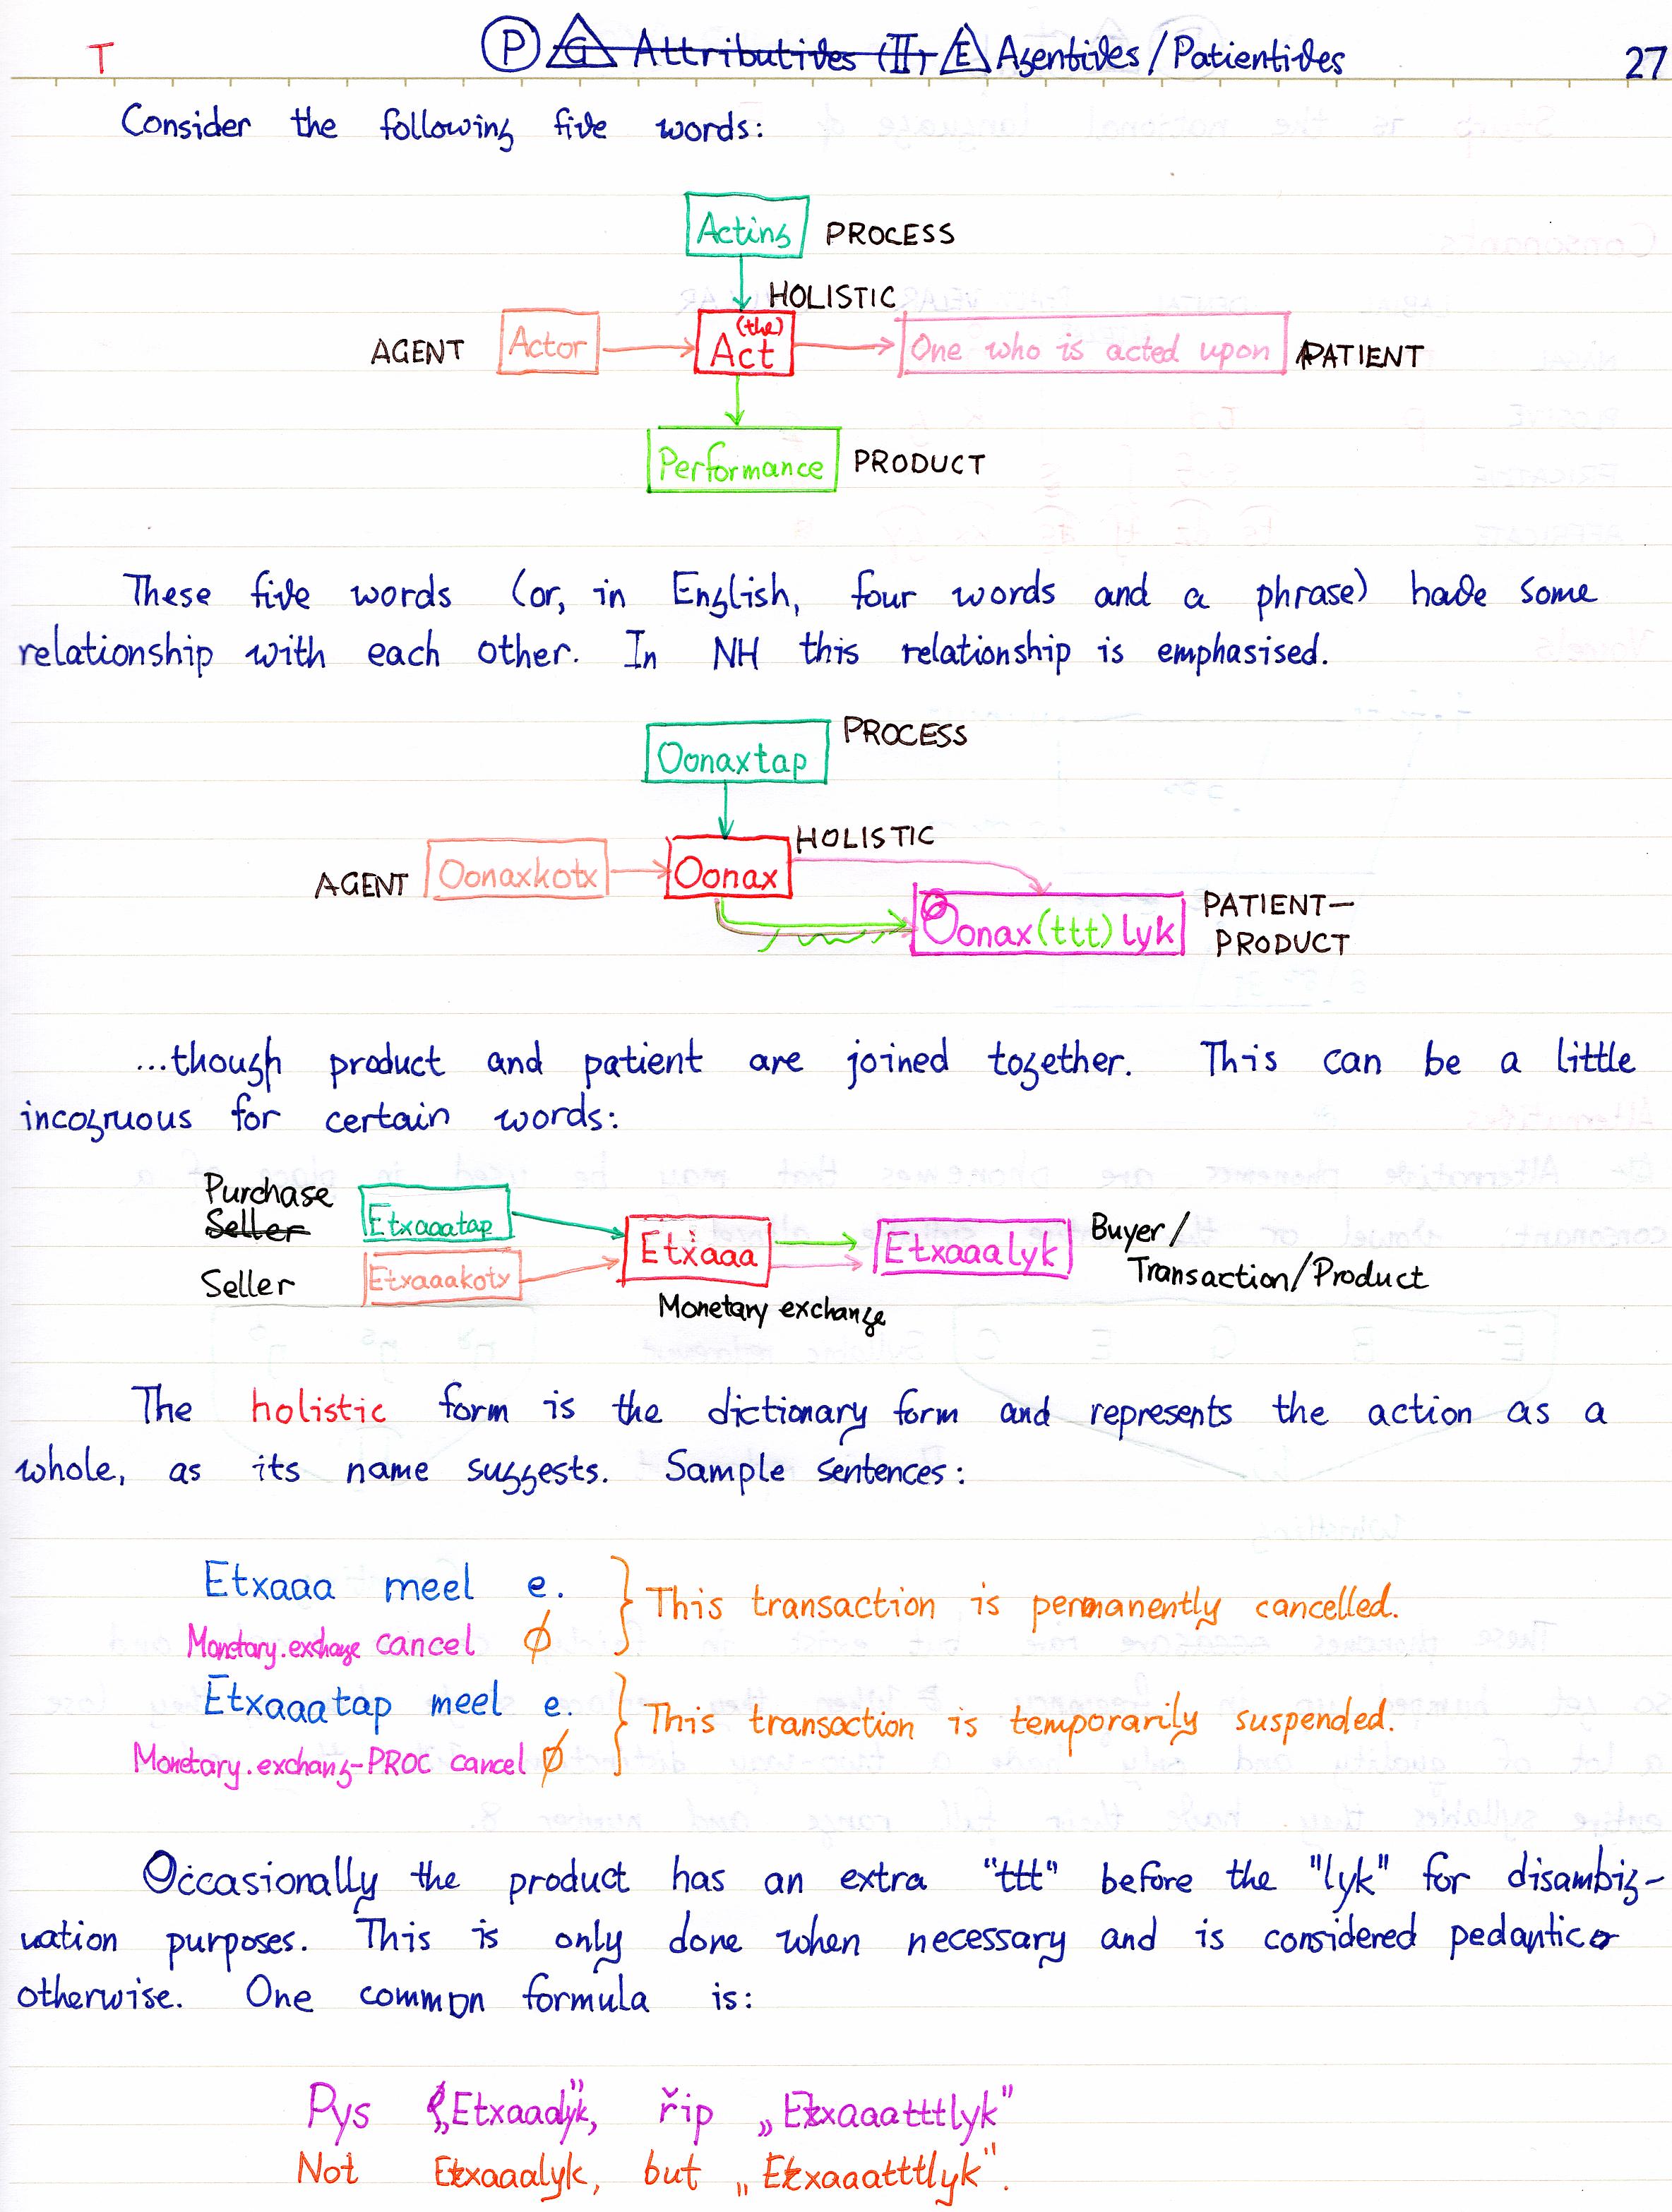 T Ⓟ G Attributives (II) E Agentives/Patientives 27
Consider the following five words:
Acting PROCESS
HOLISTIC
AGENT Actor (the) Act One who is acted upon PATIENT
Performance PRODUCT
These five words (or, in English, four words and a phrase) have some
relationship with each other. In NH this relationship is emphasised.
Oonaxtap PROCESS
HOLISTIC
AGENT Oonaxkotx Oonax
Oonax(ttt)lyk PATIENT-
PRODUCT
...though product and patient are joined together. This can be a little
incogruous for certain words:
Purchase
Seller Etxaaatap
Etxaaa Etxaaalyk Buyer/
Transaction/Product
Seller Etxaaakotx
Monetary exchange
The holistic form is the dictionary form and represents the action as a
whole, as its name suggests. Sample sentences:
Etxaaa meel e. } This transaction is permanently cancelled.
Monetary.exchage cancel ∅
Etxaaatap meel e. } This transaction is temporarily suspended.
Monetary.exchang-PROC cancel ∅
Occasionally the product has an extra "ttt" before the "lyk" for disambig-
uation purposes. This is only done when necessary and is considered pedantic
otherwise. One common formula is:
Pys „Etxaaalyk", řip „Etxaaatttlyk"
Not Etxaaalyk, but „Etxaaatttlyk".